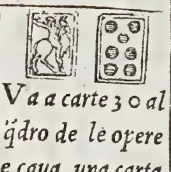 Va a carte 30 al
q̃dro de le opere
e caua una carta